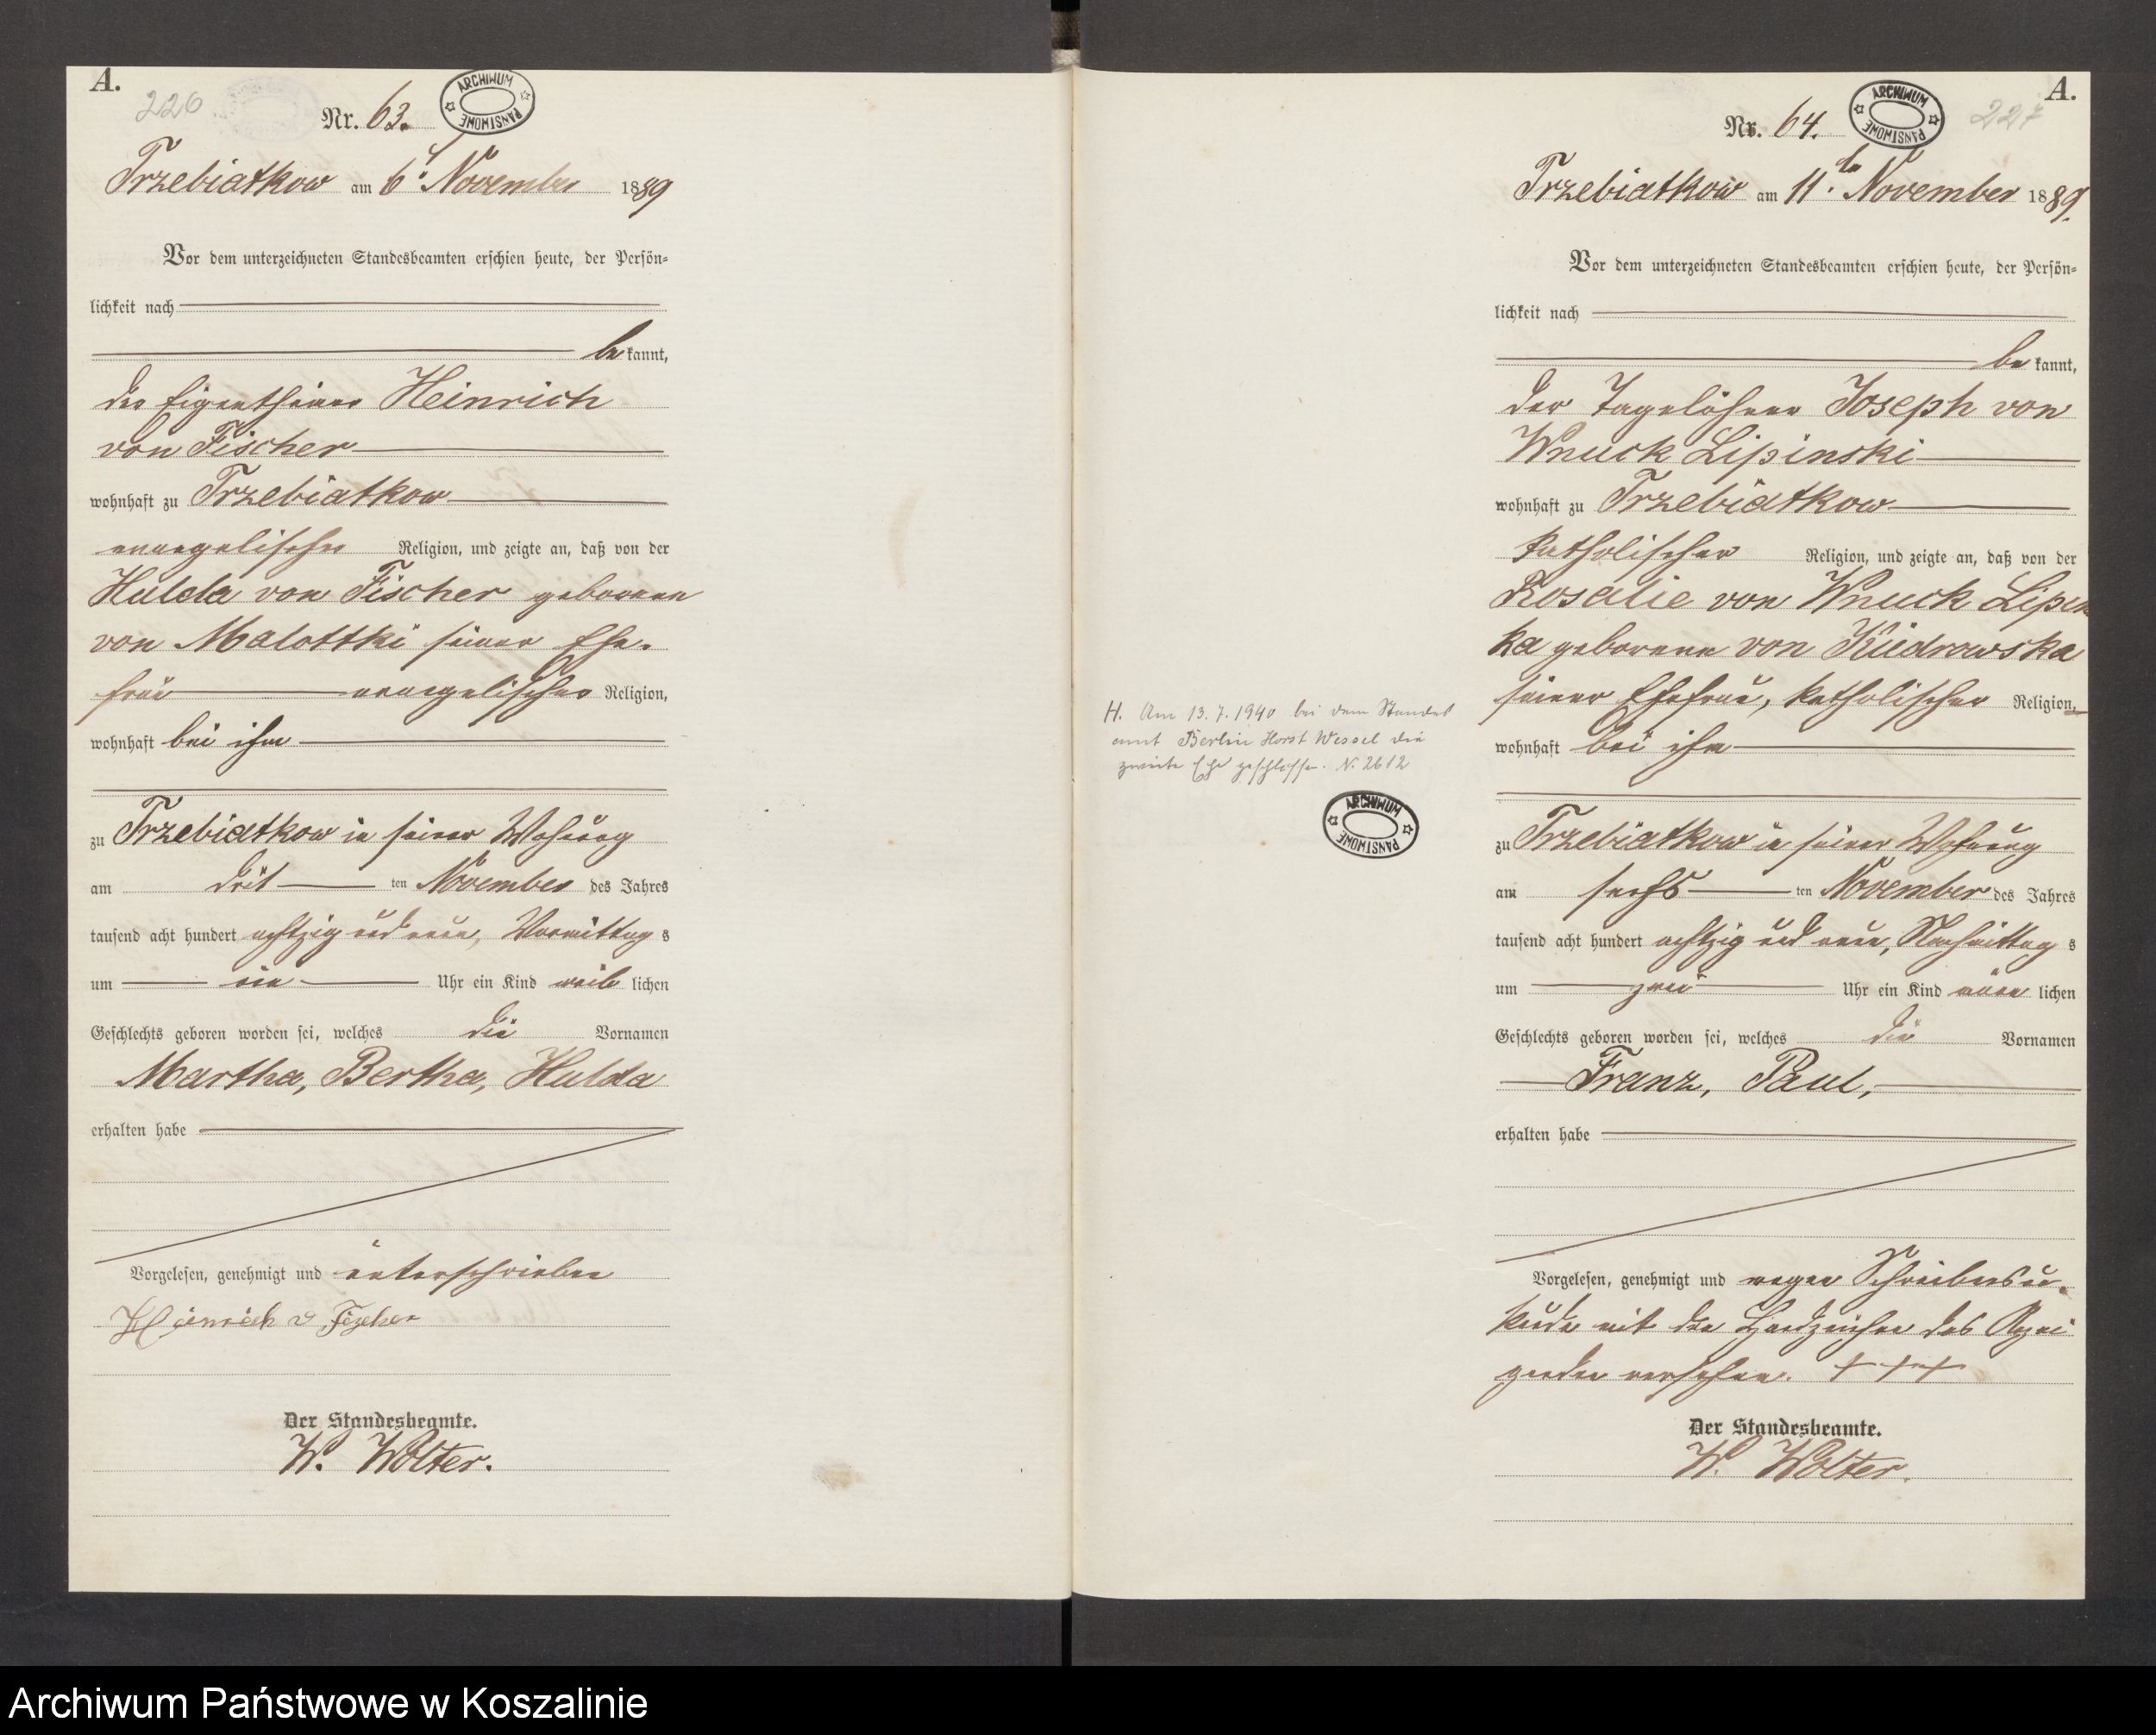 A.
226
ARCHIWUM PAŃSTWOWE
Nr. 63.
Trzebiatkow am 6t. November 1889
Vor dem unterzeichneten Standesbeamten erschien heute, der Persön-
lichkeit nach
be kannt,
der Eigenthümer Heinrich
von Fischer
wohnhaft zu Trzebiatkow
evangelischer Religion, und zeigte an, daß von der
Hulda von Fischer geborenen
von Malottki seiner Ehe-
frau evangelischer Religion,
wohnhaft bei ihm
zu Trzebiatkow in seiner Wohnung
am drit ten November des Jahres
tausend acht hundert achtzig und neun, Vormittag s
um ein Uhr ein Kind weib lichen
Geschlechts geboren worden sei, welches die Vornamen
Martha, Bertha, Hulda
erhalten habe
Vorgelesen, genehmigt und unterschrieben
Heinrich v. Fischer
Der Standesbeamte.
W. Wolter.
H. Am 13.7.1940 bei dem Standes
amt Berlin Horst Wessel die
zweite Ehe geschlossen. N. 2612
ARCHIWUM PAŃSTWOWE
A.
227
ARCHIWUM PAŃSTWOWE
Nr. 64.
Trzebiatkow am 11.ten November 1889.
Vor dem unterzeichneten Standesbeamten erschien heute, der Persön-
lichkeit nach
be kannt,
der Tagelöhner Joseph von
Wnuck Lipinski
wohnhaft zu Trzebiatkow
katholischer Religion, und zeigte an, daß von der
Rosalie von Wnuck Lipin
ka geborenen von Kiedrowska
seiner Ehefrau, katholischer Religion,
wohnhaft bei ihm
zu Trzebiatkow in seiner Wohnung
am sechs ten November des Jahres
tausend acht hundert achtzig und neun, Nachmittag s
um zwei Uhr ein Kind männ lichen
Geschlechts geboren worden sei, welches die Vornamen
Franz, Paul,
erhalten habe
Vorgelesen, genehmigt und wegen Schreibensun-
kunde mit den Handzeichen des Anzei
genden versehen. + + +
Der Standesbeamte.
W. Wolter.
Archiwum Państwowe w Koszalinie